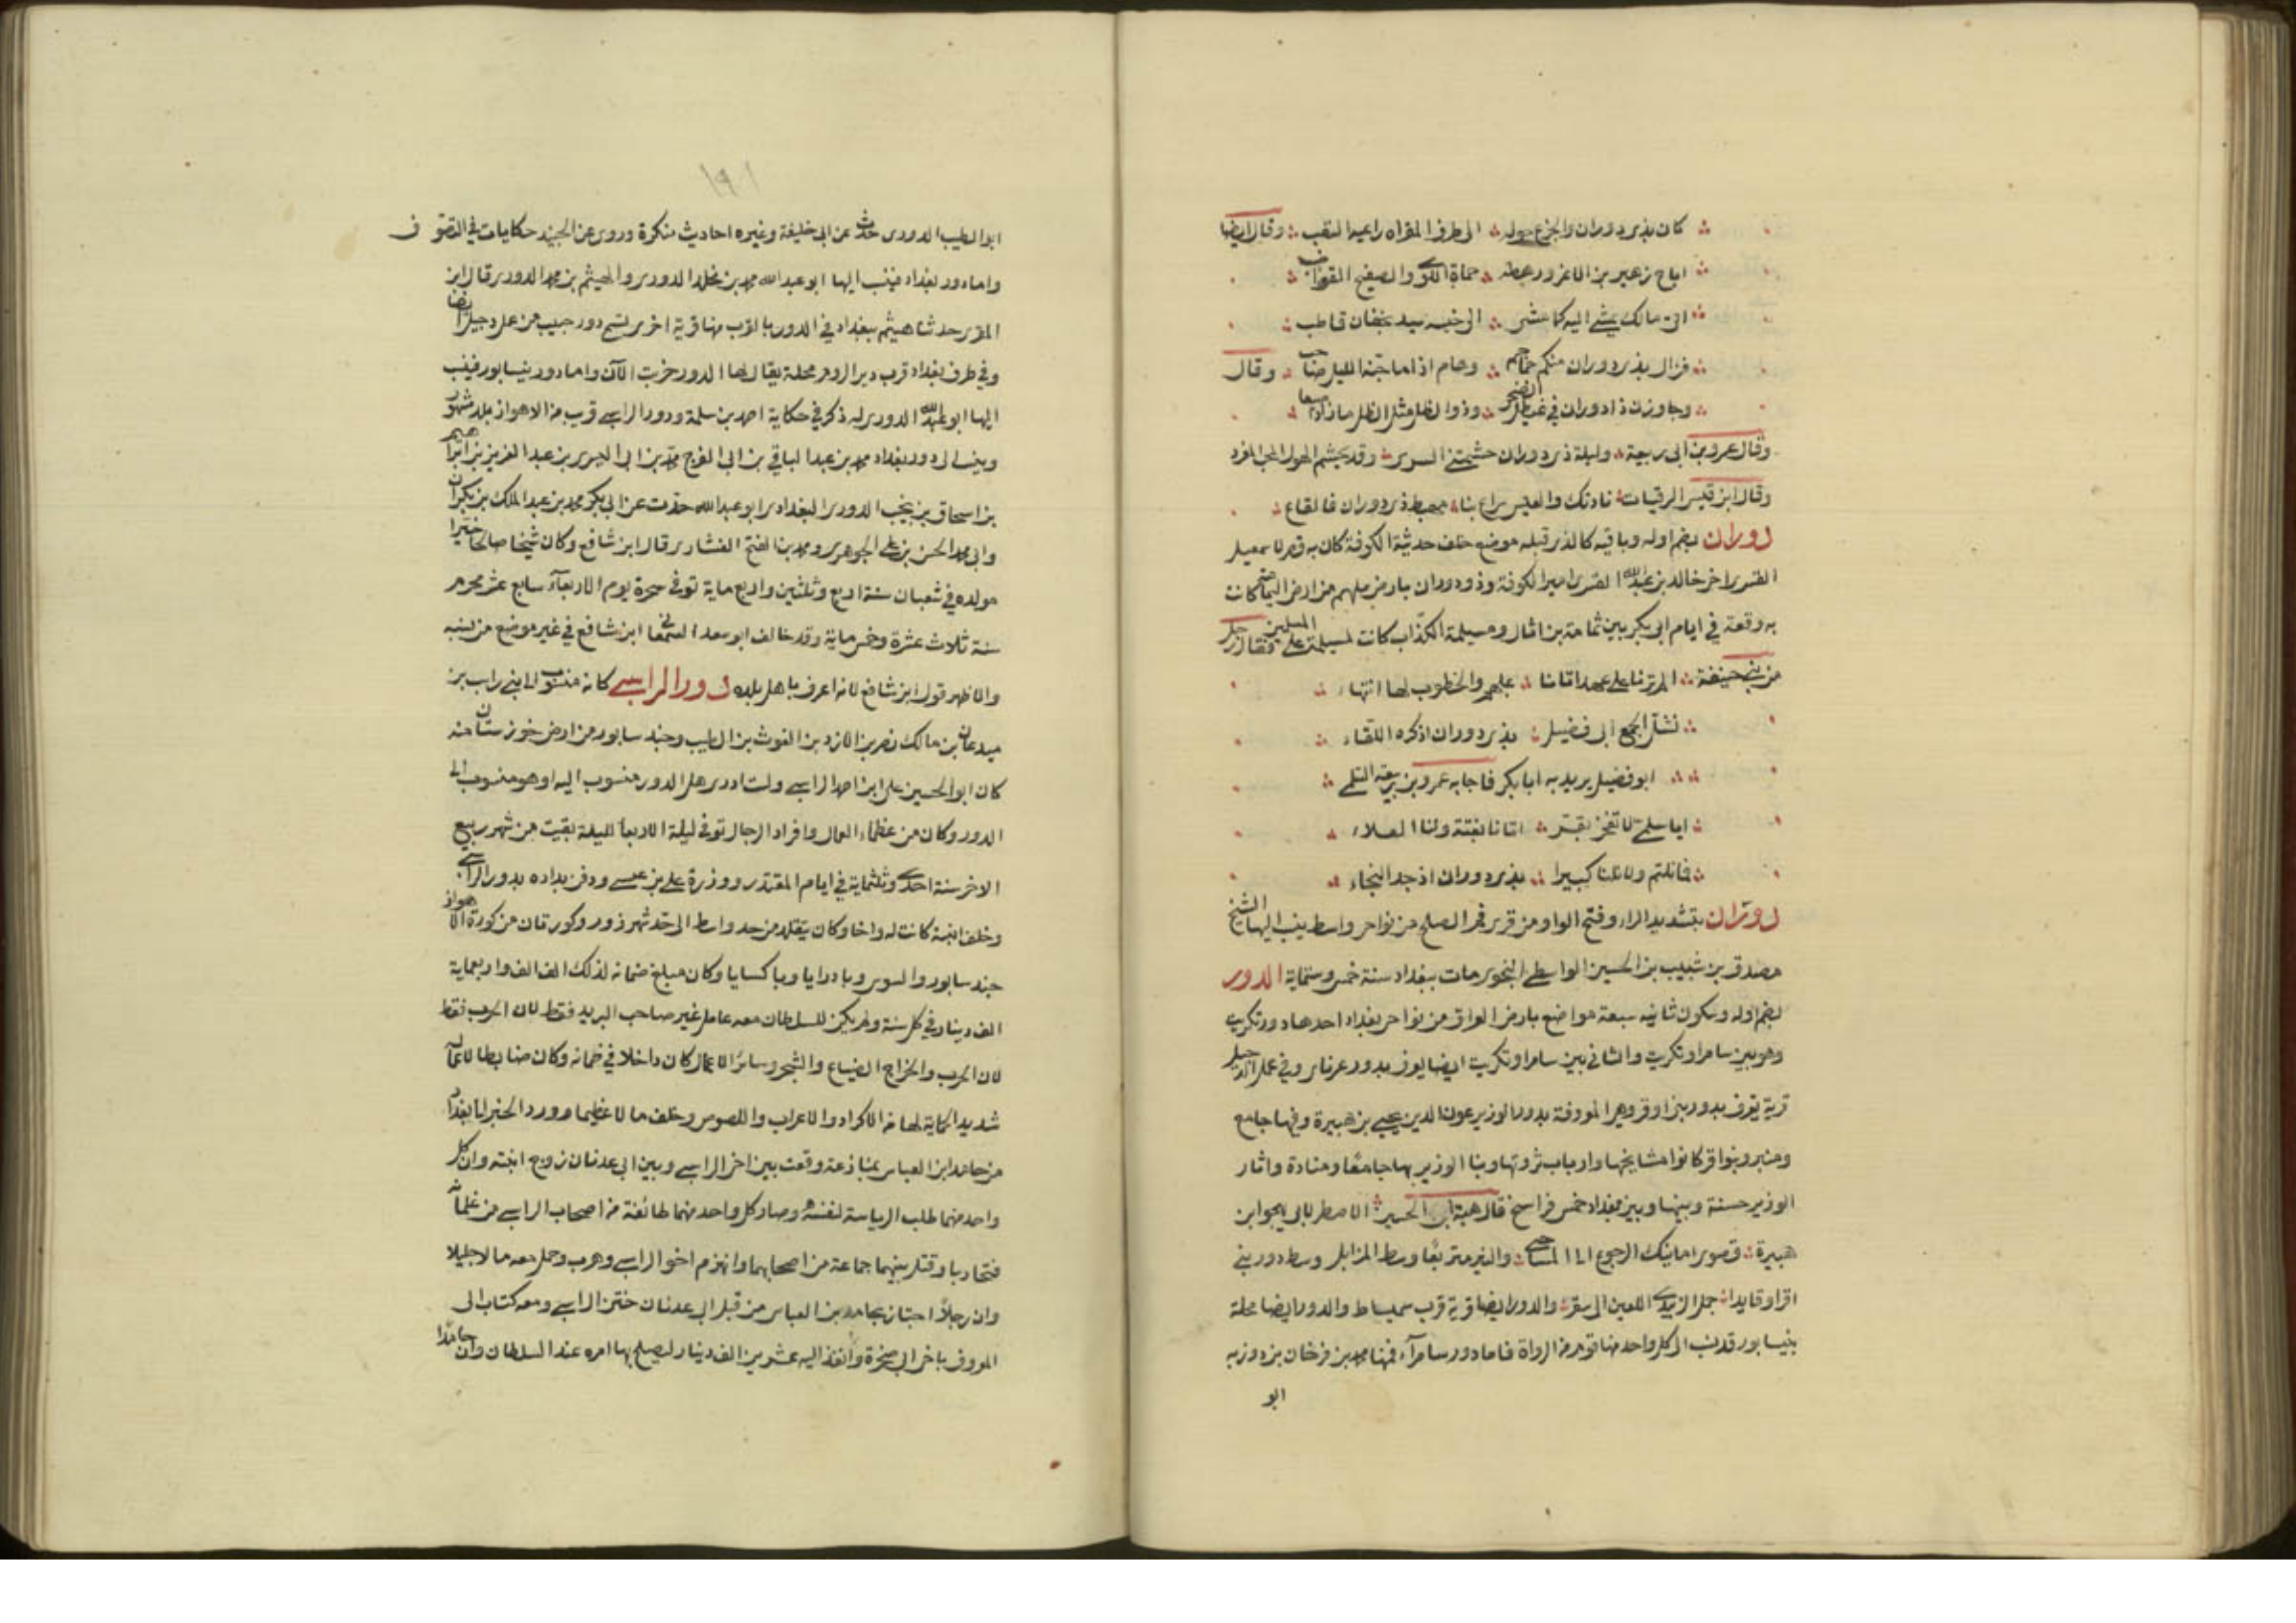 كان بذي دوران والجزع حوله الى طرف المقراه راعيه السقب وقال ايضا
اباح زهير بن الاغر ورهطه حماة اللوى والصفيح القواضب
اتى مالك يمشي اليه كما مشى الى خيسه سيد بخفان قاطب
فزال بذي دوران منكم جماجم وهام اذا ما جنه الليل صاخب وقال
وجاوزن ذا دوران في غيطل الضحى وذو الظل مثل الظل ما زاد اصبعا
وقال عمرو بن ابي ربيعة وليلة ذي دوران جشمتني السرى وقد يجشم الهول المحب المغرر
وقال ابن قيس الرقيات نادتك والعيس سراع بنا مهبط ذي دوران فالقاع
دوران بضم اوله وباقيه كالذي قبله موضع خلف حديثة الكوفة كان به قصر لاسمعيل
القسري اخي خالد بن عبد الله القسري امير الكوفة وذو دوران بارض ملهم من ارض اليمامة كانت
به وقعة في ايام ابي بكر بين ثمامة بن اثال ومسيلمة الكذاب كانت لمسيلمة على المسلمين فقال رجل
من بني حنيفة الم ترنا على عهد اتانا بملهم والخطوب لها انتهاء
فشل الجمع ابي فضيل بذي دوران اذ كره اللقاء
ابو فضيل يريد به ابا بكر فاجابه عمرو بن ربيعة السلمي
ايا سلمى لا تفخر بقر اتانا بغتة ولنا العلاء
فما نلتم ولا نلنا كبيرا بذي دوران اذ جد النجاء
دوران بتشديد الراء وفتح الواو من قرى فم الصلح من نواحي واسط ينسب اليها الشيخ
مصدق بن شبيب بن الحسين الواسطي النحوي مات ببغداد سنة خمس وستماية الدور
بضم اوله وسكون ثانيه سبعة مواضع بارض العراق من نواحي بغداد احدها دور تكريت
وهو بين سامرا وتكريت والثاني بين سامرا وتكريت ايضا يعرف بدور عرباي وفي عمل الدجيل
قرية تعرف بدور بني اوقر وهي المعروفة بدور الوزير عون الدين يحيى بن هبيرة وفيها جامع
ومنبر وبنو اوقر كانوا مشايخها وارباب ثروتها وبنا الوزير بها جامعا ومنارة واثار
الوزير حسنة وبينها وبين بغداد خمس فراسخ قال هبة الله بن الحسين الاصطرلابي يهجو ابن
هبيرة قصوى امانيك الرجوع الى المساحي والنير متربعا وسط المزابل وسط دور بني
اقر او قايدا جمل الزبيدي اللعين الى سقر والدور ايضا قرية قرب سميساط والدور ايضا محلة
بنيسابور قد نسب الى كل واحد منها قوم من الرواة فاما دور سامرآء فمنها محمد بن فرخان بن دوزبه
ابو
١٩١
ابو الطيب الدوري حدث عن ابي خليفة وغيره احاديث منكرة وروى عن الجنيد حكايات في التصوف
واما دور بغداد فينسب اليها ابو عبد الله محمد بن مخلد الدوري والهيثم بن محمد الدوري قال ابن
المقري حدثنا هيثم ببغداد في الدور بالقرب منها قرية اخرى تسمى دور حبيب من عمل دجيل ايضا
وفي طرف بغداد قرب دير الروم محلة يقال لها الدور خربت الآن واما دور نيسابور فينسب
اليها ابو عبد الله الدوري له ذكر في حكاية احمد بن سلمة ودور الراسبي قرب من الاهواز بلد مشهور
وينسب الى دور بغداد محمد بن عبد الباقي بن ابي الفرج محمد بن ابي اليسري بن عبد العزيز بن ابراهيم
بن اسحاق بن نجيب الدوري البغدادي ابو عبد الله حدث عن ابي بكر محمد بن عبد الملك بن بكران
وابي محمد الحسن بن علي الجوهري ومحمد بن الفتح العشاري قال ابن شافع وكان شيخا صالحا خيرا
مولده في شعبان سنة اربع وثلثين واربع ماية توفي سحرة يوم الاربعآء سابع عشر محرم
سنة ثلاث عشرة وخمس ماية وقد خالف ابو سعد السمعاني ابن شافع في غير موضع من نسبه
والاظهر قول ابن شافع لانه اعرف باهل بلده دور الراسبي كانه منسوب الى بني راسب بن
ميدعان بن مالك نصر بن الازد بن الغوث بين الطيب وجند سابور من ارض خوزستان منه
كان ابو الحسين علي ابن احمد الراسبي ولست ادري هل الدور منسوب اليه او هو منسوب الى
الدور وكان من عظماء العمال وافراد الرجال توفي ليلة الاربعا لليلة بقيت من شهر ربيع
الاخر سنة احدى وثلثماية في ايام المقتدر ووزرة علي بن عيسى ودفن بداره بدور الراسبي
وخلف ابنة كانت له واخا وكان يتقلد من حد واسط الى حد شهرزور وكورتان من كورة الاهواز
جند سابور والسوس وبادرايا وباكسايا وكان مبلغ ضمانه لذلك الف الف واربعماية
الف دينار في كل سنة ولم يكن للسلطان معه عامل غير صاحب البريد فقط لان الحرب فقط
لان الحرب والخراج الضياع والشجر وسائر الاعمال كان داخلا في ضمانه وكان ضابطا لاعماله
شديد الحماية لها من الاكراد والاعراب واللصوص وخلف مالا عظيما وورد الخبر الى بغداد
من حامد ابن العباس بمنازعة وقعت بين اخي الراسبي وبين ابي عدنان زوج ابنته وان كل
واحد منهما طلب الرياسة لنفسه وصار كل واحد منهما طائفة من اصحاب الراسبي من غلمانه
فتحاربا وقتل بينهما جماعة من اصحابهما وانهزم اخو الراسبي وهرب وحمل معه مالا جليلا
وان رجلا اجتاز بحامد بن العباس من قبل ابي عدنان ختن الراسبي ومعه كتاب الى
المعروف باخي ابي صخرة وانفذ اليه عشرين الف دينار ليصلح بها امره عند السلطان وان حامدا